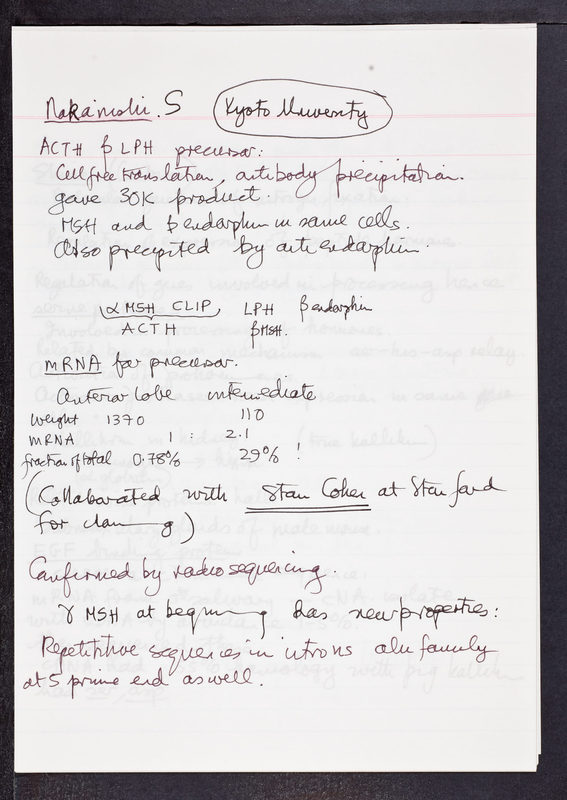 Nakanishi. S Kyoto University
ACTH β LPH precursor:
Cell free translation, antibody precipitation.
gave 30K product.
MSH and β endorphin in same cells.
Also precipited by anti endorphin.
α MSH CLIP LPH β endorphin
ACTH βMSH.
mRNA for precursor.
Anterior lobe intermediate
weight 1370 110
mRNA 1 : 2.1
fraction of total 0.78% 29% !
(Collaborated with Stan Cohen at Stanford
for cloning)
Confirmed by radio sequencing.
γ MSH at beginning has new properties:
Repetitive sequences in introns alu family
at 5 prime end as well.